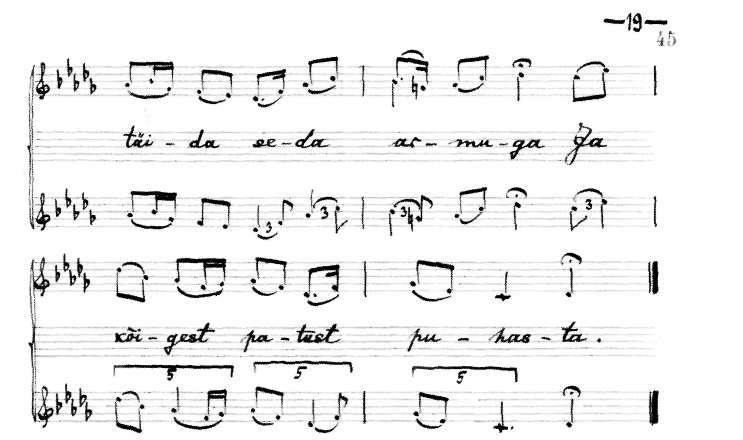 —19—
45
täi - da se - da ar - mu - ga Ja
3 3 3 3
kõi - gest pa - tust pu - has - ta.
5 5 5